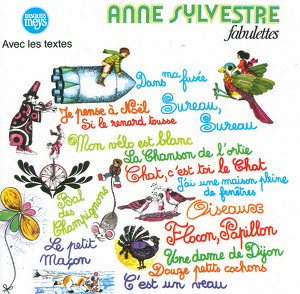 disques
meys
ANNE SYLVESTRE
fabulettes
Avec les textes
Dans ma fusée
Je pense à Noël
Sureau,
Sureau
Si le renard tousse
Mon vélo est blanc
La Chanson de l'ortie
Chat, c'est toi le Chat
J'ai une maison pleine
de fenêtres
Bal
des
Champignons
Oiseaux
Flocon, Papillon
Le petit
Maçon
Une dame de Dijon
Douze petits cochons
C'est un veau